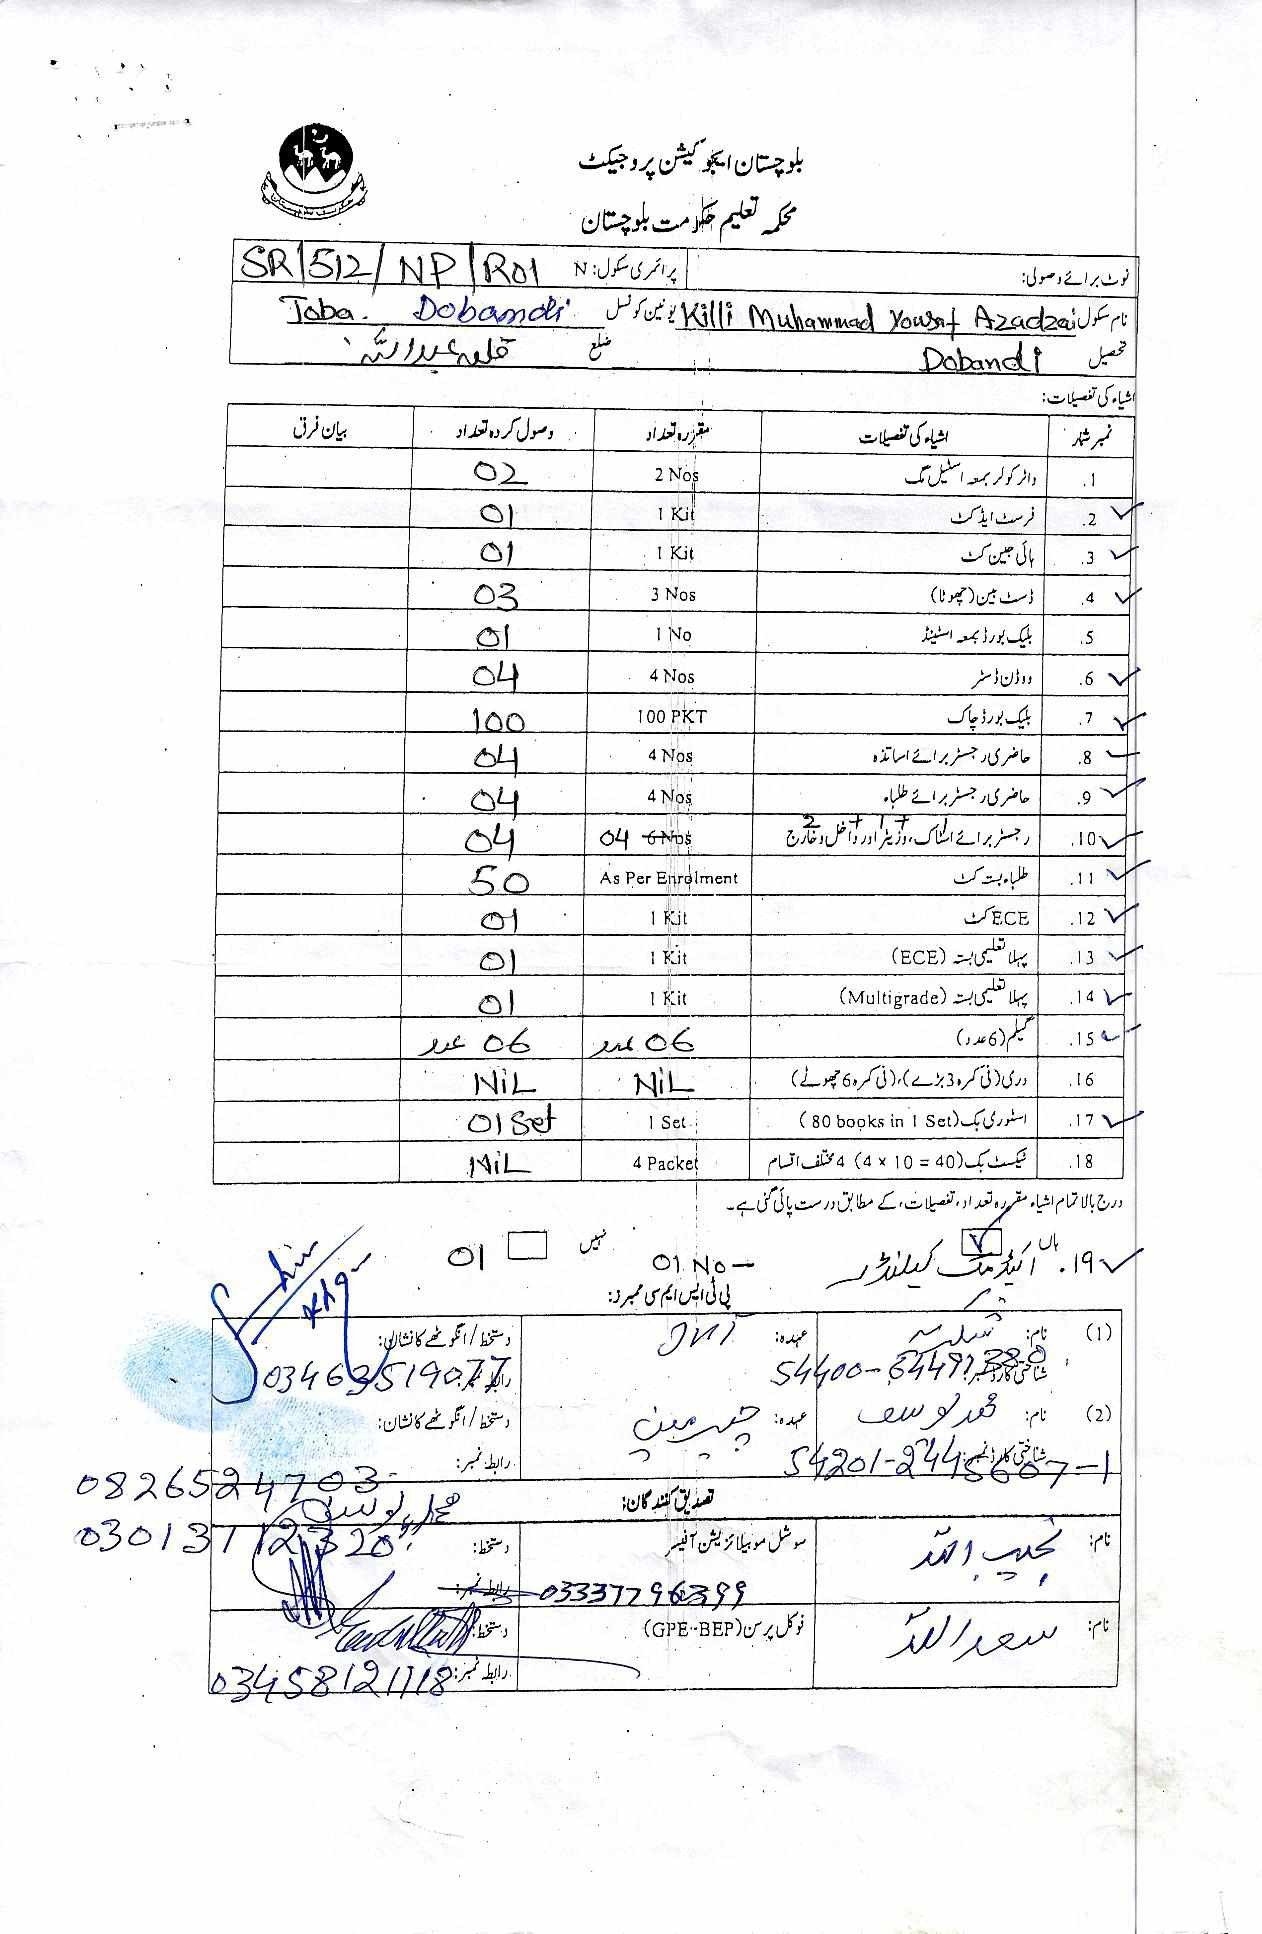 بلوچستان ایجوکیشن پروجیکٹ
محکمہ تعلیم حکومت بلوچستان
نوٹ برائے وصولی: پرائمری سکول: N SR/512/NP/R01
نام سکول Killi Muhammad Yousaf Azadzai یونین کونسل Toba. Dobandi
تحصیل Dobandi ضلع قلعہ عبداللہ
اشیاء کی تفصیلات:
نمبر شمار اشیاء کی تفصیلات مقررہ تعداد وصول کردہ تعداد بیان فرق
1. واٹر کولر بمعہ اسٹیل مگ 2 Nos 02
2. فرسٹ ایڈ کٹ 1 Kit 01
3. ہائی جین کٹ 1 Kit 01
4. ڈسٹ بین (چھوٹا) 3 Nos 03
5. بلیک بورڈ بمعہ اسٹینڈ 1 No 01
6. ووڈن ڈسٹر 4 Nos 04
7. بلیک بورڈ چاک 100 PKT 100
8. حاضری رجسٹر برائے اساتذہ 4 Nos 04
9. حاضری رجسٹر برائے طلباء 4 Nos 04
2 + 1 + 1
10. رجسٹر برائے اسٹاک، وزیٹر اور داخل و خارج 04 6 Nos 04
11. طلباء بستہ کٹ As Per Enrolment 50
12. ECE کٹ 1 Kit 01
13. پہلا تعلیمی بستہ (ECE) 1 Kit 01
14. پہلا تعلیمی بستہ (Multigrade) 1 Kit 01
15. گیلم (6 عدد) 06 عدد 06 عدد
16. دری (فی کمرہ 3 بڑے)، (فی کمرہ 6 چھوٹے) NiL NiL
17. اسٹوری بک (80 books in 1 Set) 1 Set 01 Set
18. ٹیکسٹ بک (4 x 10 = 40) 4 مختلف اقسام 4 Packet NiL
درج بالا تمام اشیاء مقررہ تعداد، تفصیلات، کے مطابق درست پائی گئی ہے۔
ہاں نہیں
19. اکیڈمک کیلنڈر 01 No 01
پی ٹی ایس ایم سی ممبرز:
(1) نام: عہدہ: JVT دستخط / انگوٹھے کا نشان:
شناختی کارڈ نمبر: رابطہ نمبر: 03463519077
(2) نام: محمد یوسف عہدہ: چیرمین دستخط / انگوٹھے کا نشان:
شناختی کارڈ نمبر: 54201-2445607-1 رابطہ نمبر: 0826524703
تصدیق کنندگان: محمد یوسف
03013112320
نام: نجیب اللہ سوشل موبیلائزیشن آفیسر دستخط:
رابطہ نمبر: 03337796399
نام: سعداللہ فوکل پرسن (GPE-BEP) دستخط:
رابطہ نمبر: 03458121118